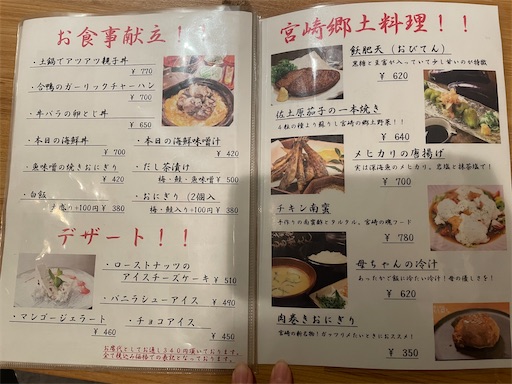 お食事献立！！
・土鍋でアツアツ親子丼
¥ 770
・合鴨のガーリックチャーハン
¥ 700
・牛バラの卵とじ丼
¥ 650
・本日の海鮮丼
¥ 700
・本日の海鮮味噌汁
¥ 420
・魚味噌の焼きおにぎり
¥ 420
・だし茶漬け
梅・鮭・魚味噌 ¥ 500
・白飯
大盛り+100円 ¥ 380
・おにぎり（2個入
梅・鮭入り+100円 ¥ 380
デザート！！
・ローストナッツの
アイスチーズケーキ ¥ 510
・バニラシューアイス ¥ 490
・マンゴージェラート
¥ 460
・チョコアイス
¥ 450
お席代としてお通し340円頂いております。
全て税込み価格での表記となっております。
宮崎郷土料理！！
飫肥天（おびてん）
黒糖と豆富が入っていて少し甘いのが特徴
¥ 620
佐土原茄子の一本焼き
4粒の種より蘇りし宮崎の郷土野菜！！
¥ 640
メヒカリの唐揚げ
実は深海魚のメヒカリ。岩塩と抹茶塩で！
¥ 700
チキン南蛮
手作りの南蛮酢とタルタル。宮崎の魂フード
¥ 780
母ちゃんの冷汁
あったかご飯に冷たい冷汁！母の優しさを！
¥ 620
肉巻きおにぎり
宮崎の新名物！ガッツリメたいときにおススメ！
¥ 350